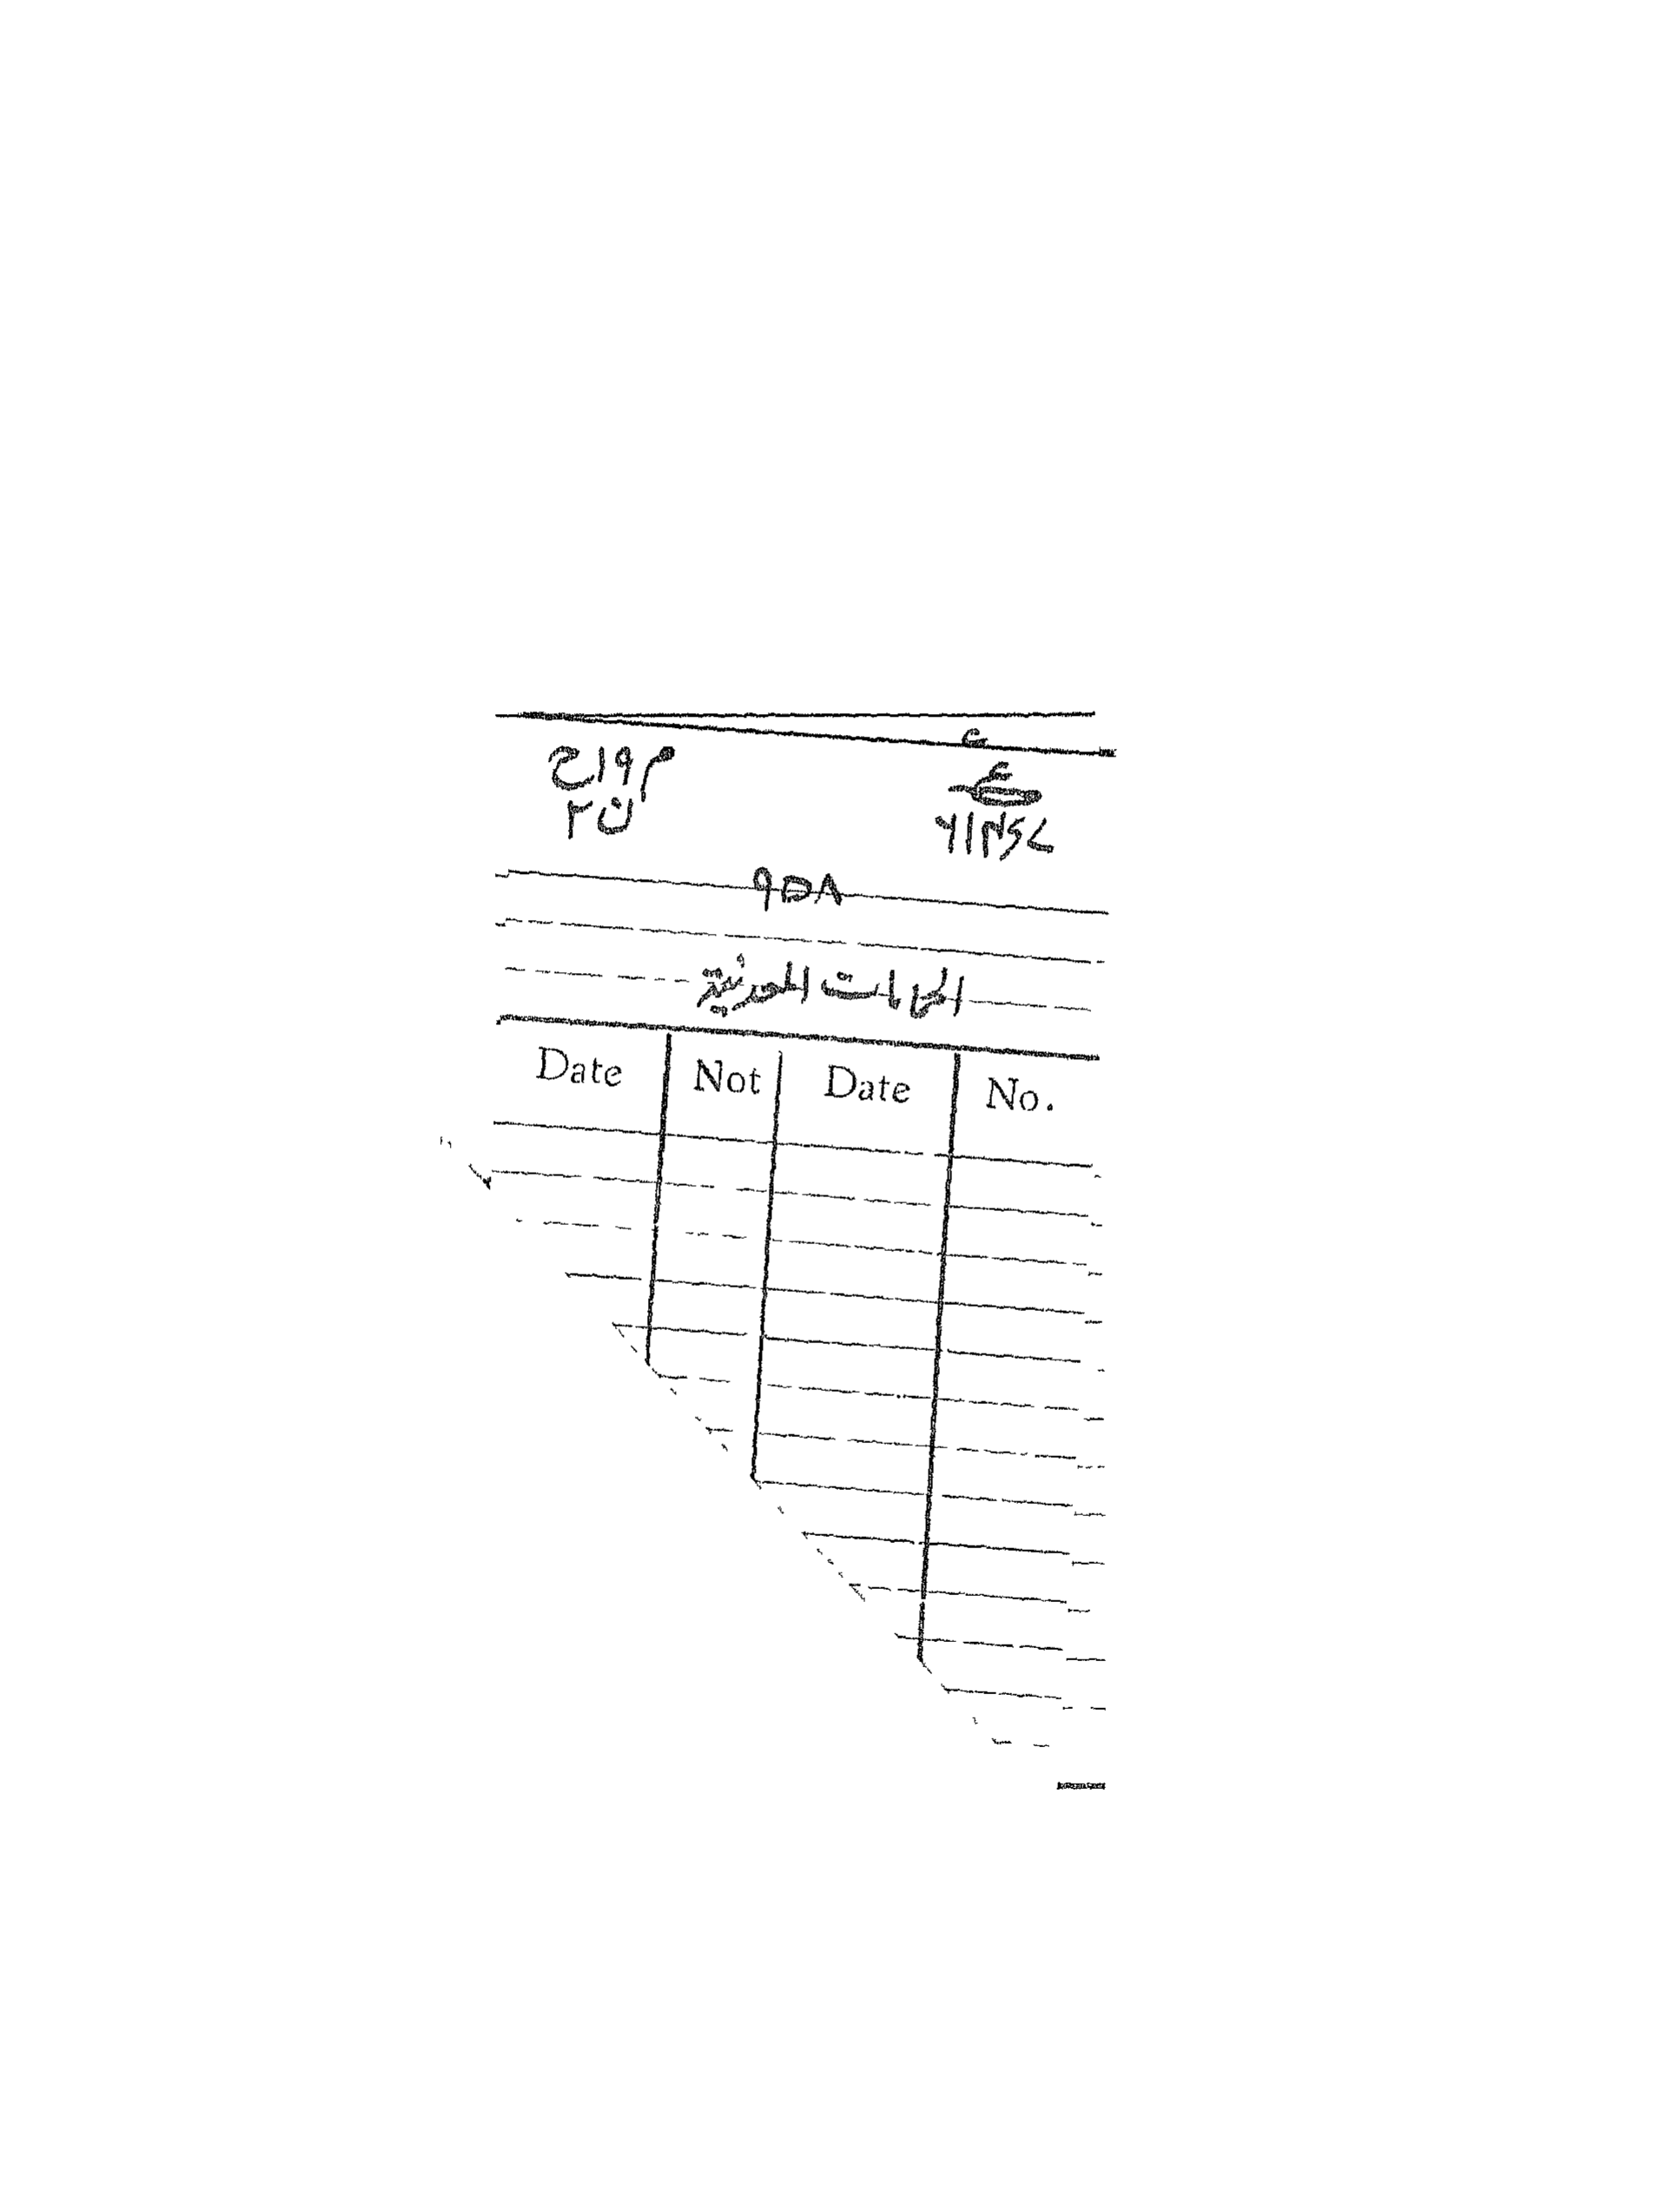 م ٩ ا ح
ن ٢
ع
ع
٩٥٨
الحمامات المعدنية
Date Not Date No.